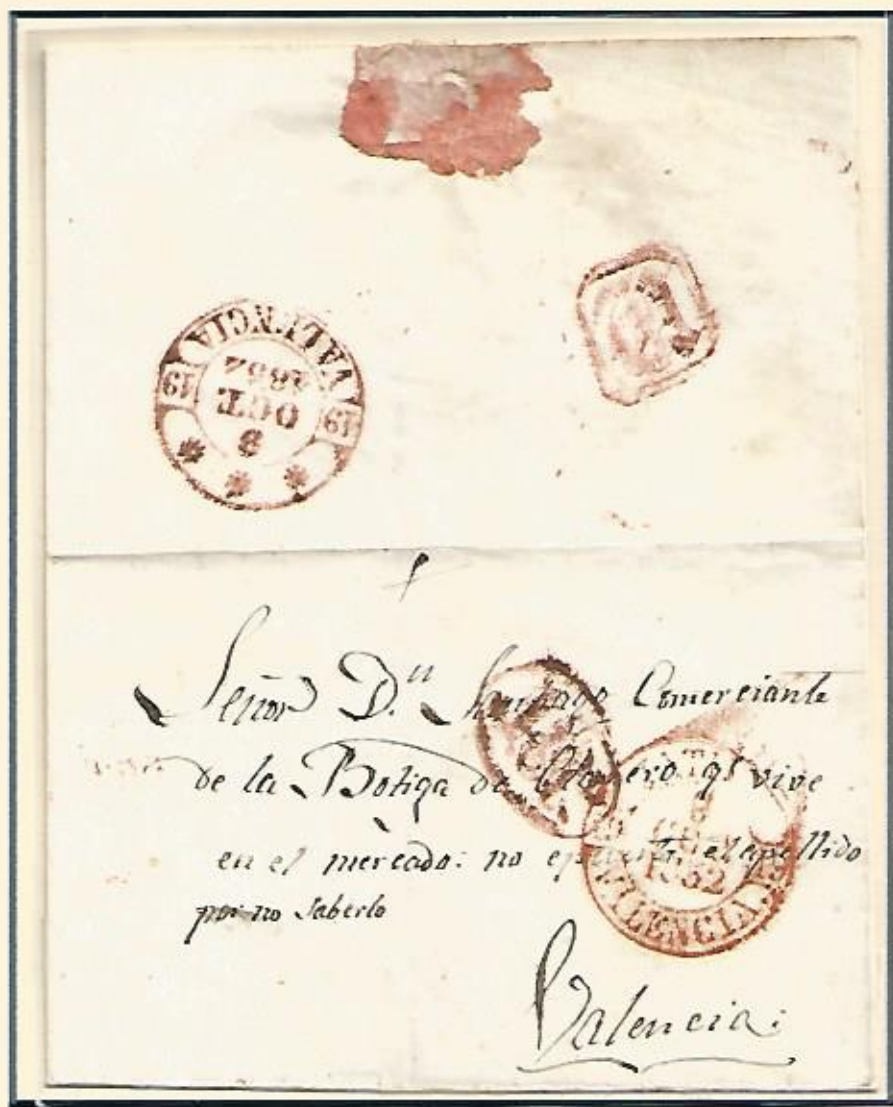 VALENCIA
19 19
9
OCT.
1852
Señor D.ⁿ Santiago Comerciante
de la Botiga de qᵉ vive
en el mercado: no el apellido
por no saberlo
1852
VALENCIA
Valencia: